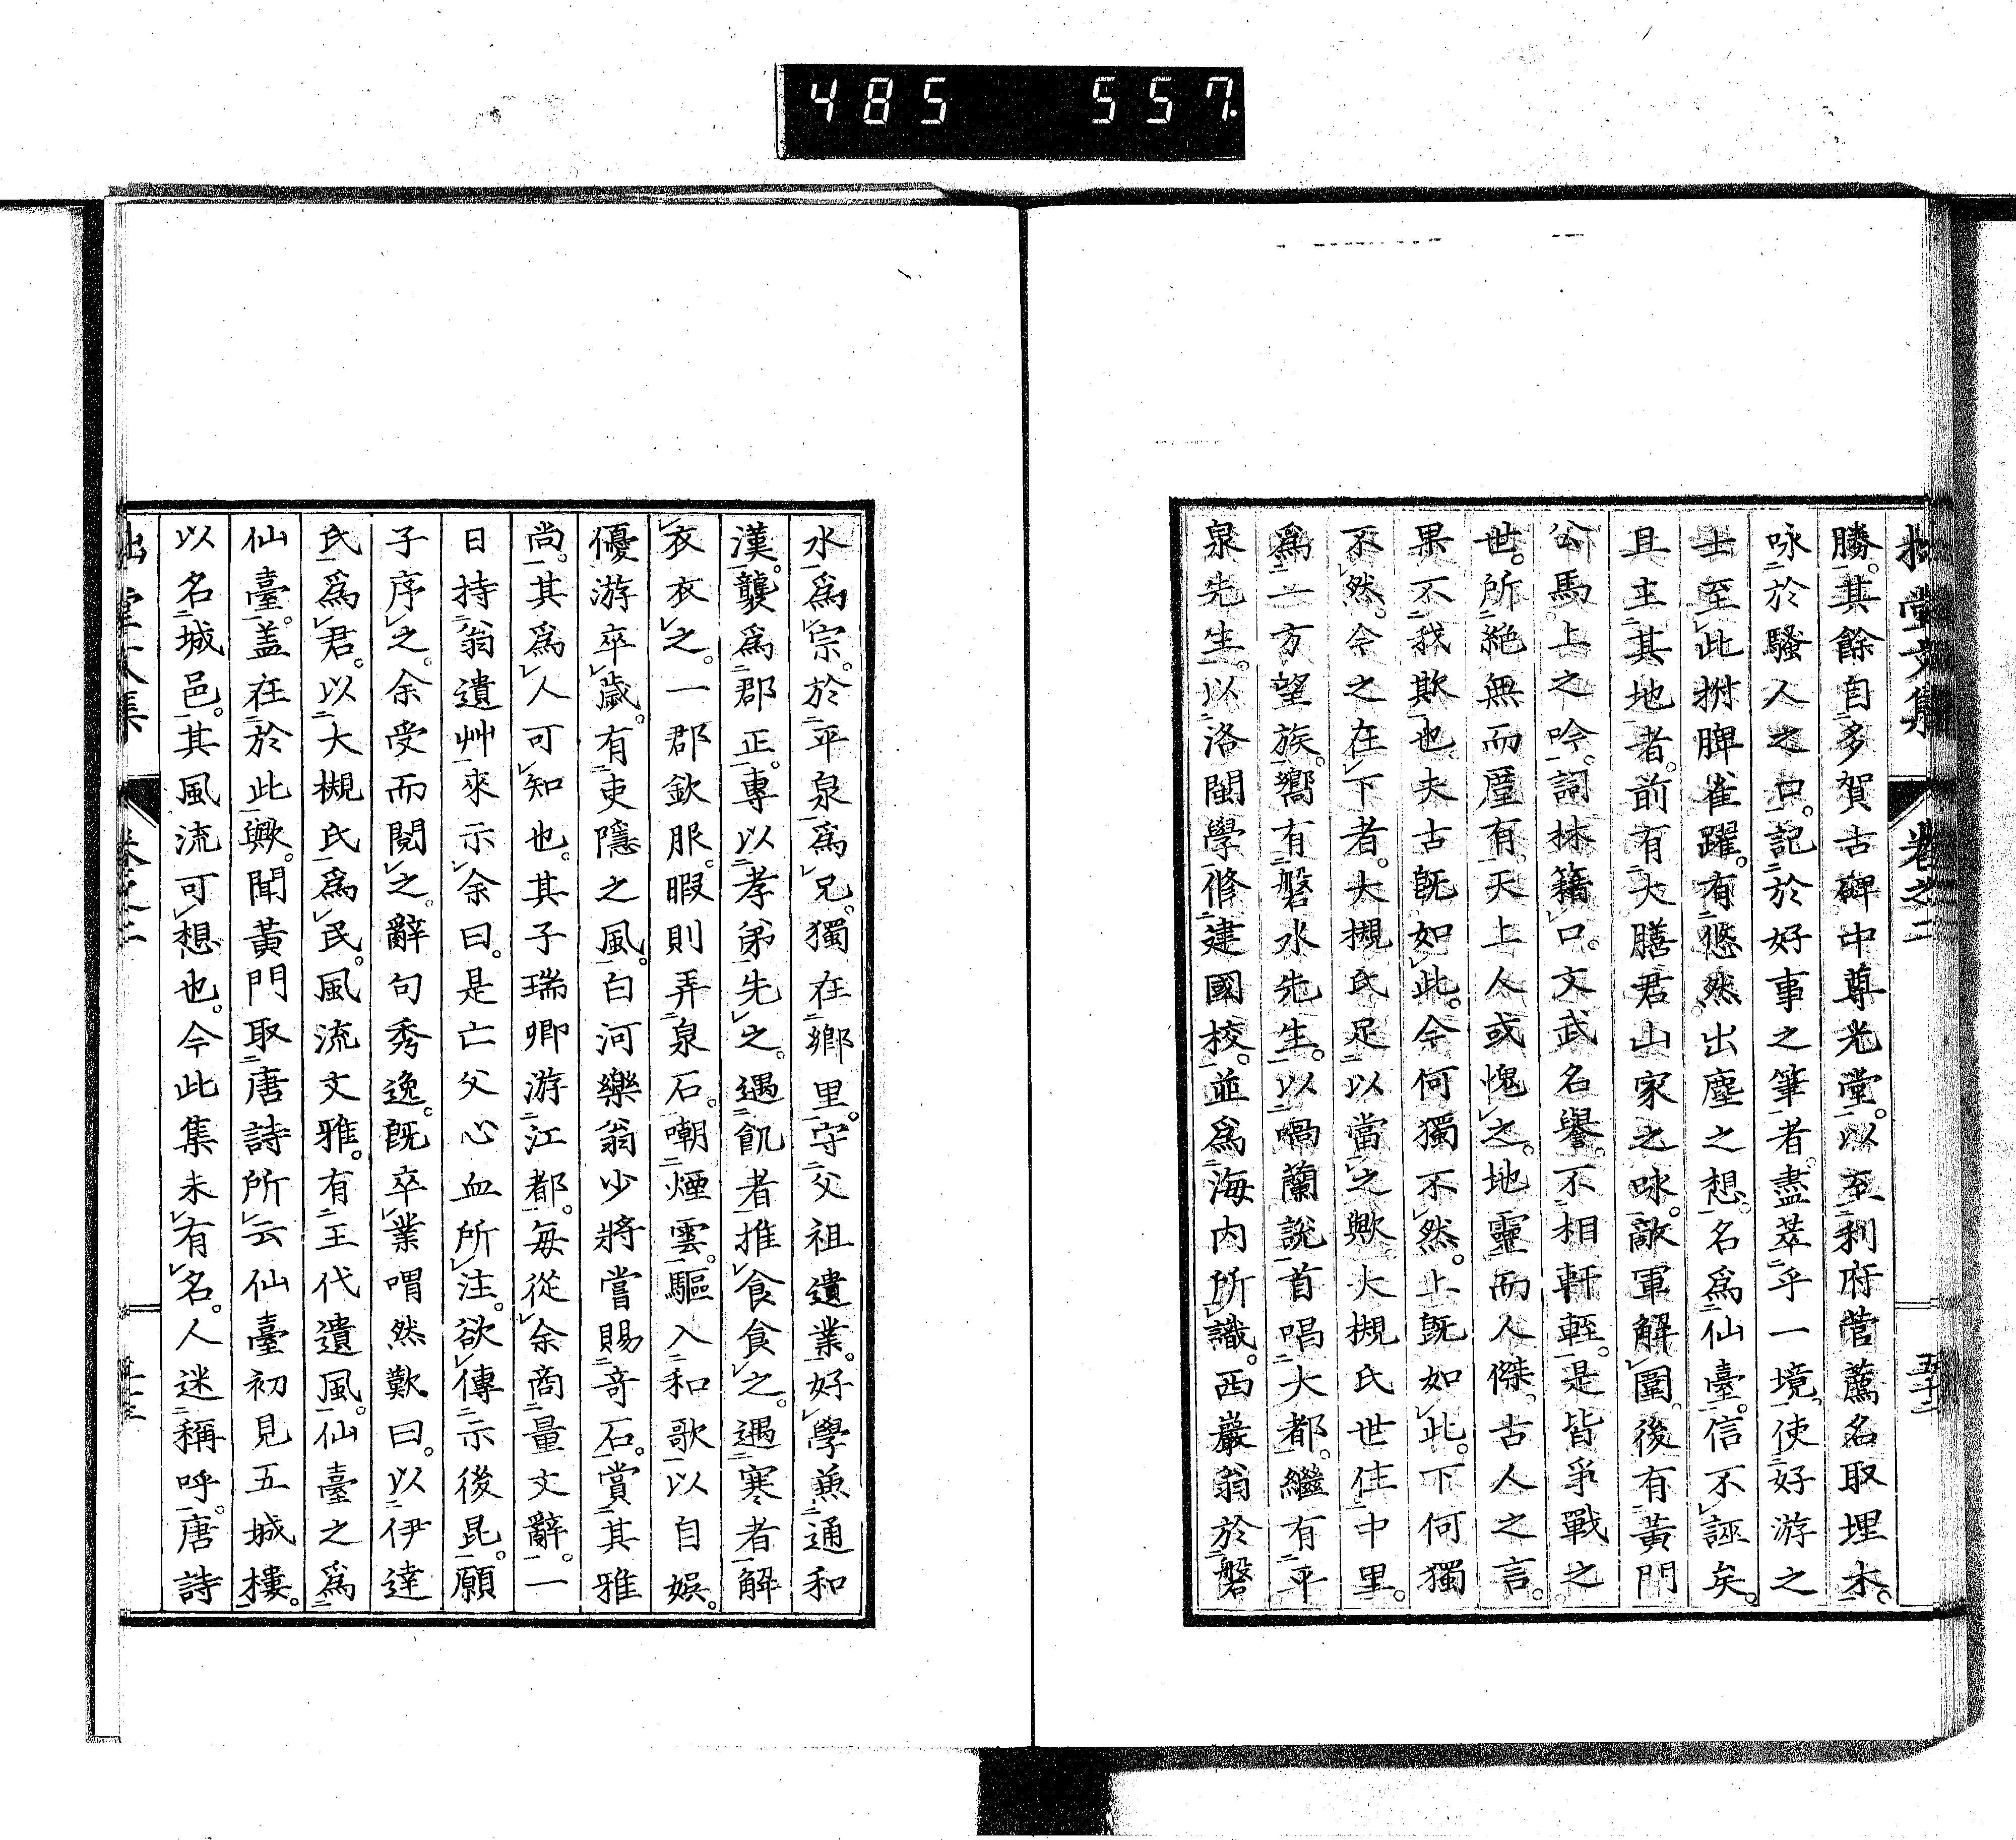 485 557.
勝。其餘自多賀古碑中尊光堂。以至利府菅薦名取埋木。
咏於騷人之口。記於好事之筆者。盡萃乎一境。使好游之
士至此拊脾雀躍。有悠然出塵之想。名爲仙臺。信不誣矣。
且主其地者。前有大膳君山家之咏。敵軍解圍。後有黃門
公馬上之吟。詞林籍口。文武名譽。不相軒輊。是皆爭戰之
世。所絕無而廑有。天上人或愧之。地靈而人傑。古人之言。
果不我欺也。夫古旣如此。今何獨不然。上旣如此。下何獨
不然。今之在下者。大槻氏足以當之歟。大槻氏世住中里。
爲一方望族。嚮有磐水先生。以喎蘭說首唱大都。繼有平
泉先生。以洛閩學修建國校。並爲海內所識。西巖翁於磐
水爲宗。於平泉爲兄。獨在鄉里。守父祖遺業。好學兼通和
漢。襲爲郡正。專以孝弟先之。遇飢者推食食之。遇寒者解
衣衣之。一郡欽服。暇則弄泉石。嘲煙雲。驅入和歌以自娛。
優游卒歲。有吏隱之風。白河樂翁少將嘗賜奇石。賞其雅
尚。其爲人可知也。其子瑞卿游江都。每從余商量文辭。一
日持翁遺艸來示余曰。是亡父心血所注。欲傳示後昆。願
子序之。余受而閱之。辭句秀逸。旣卒業喟然歎曰。以伊達
氏爲君。以大槻氏爲民。風流文雅。有王代遺風。仙臺之爲
仙臺。盖在於此歟。聞黃門取唐詩所云仙臺初見五城樓。
以名城邑。其風流可想也。今此集未有名。人迷稱呼。唐詩
拙堂文集 卷之二 五十二